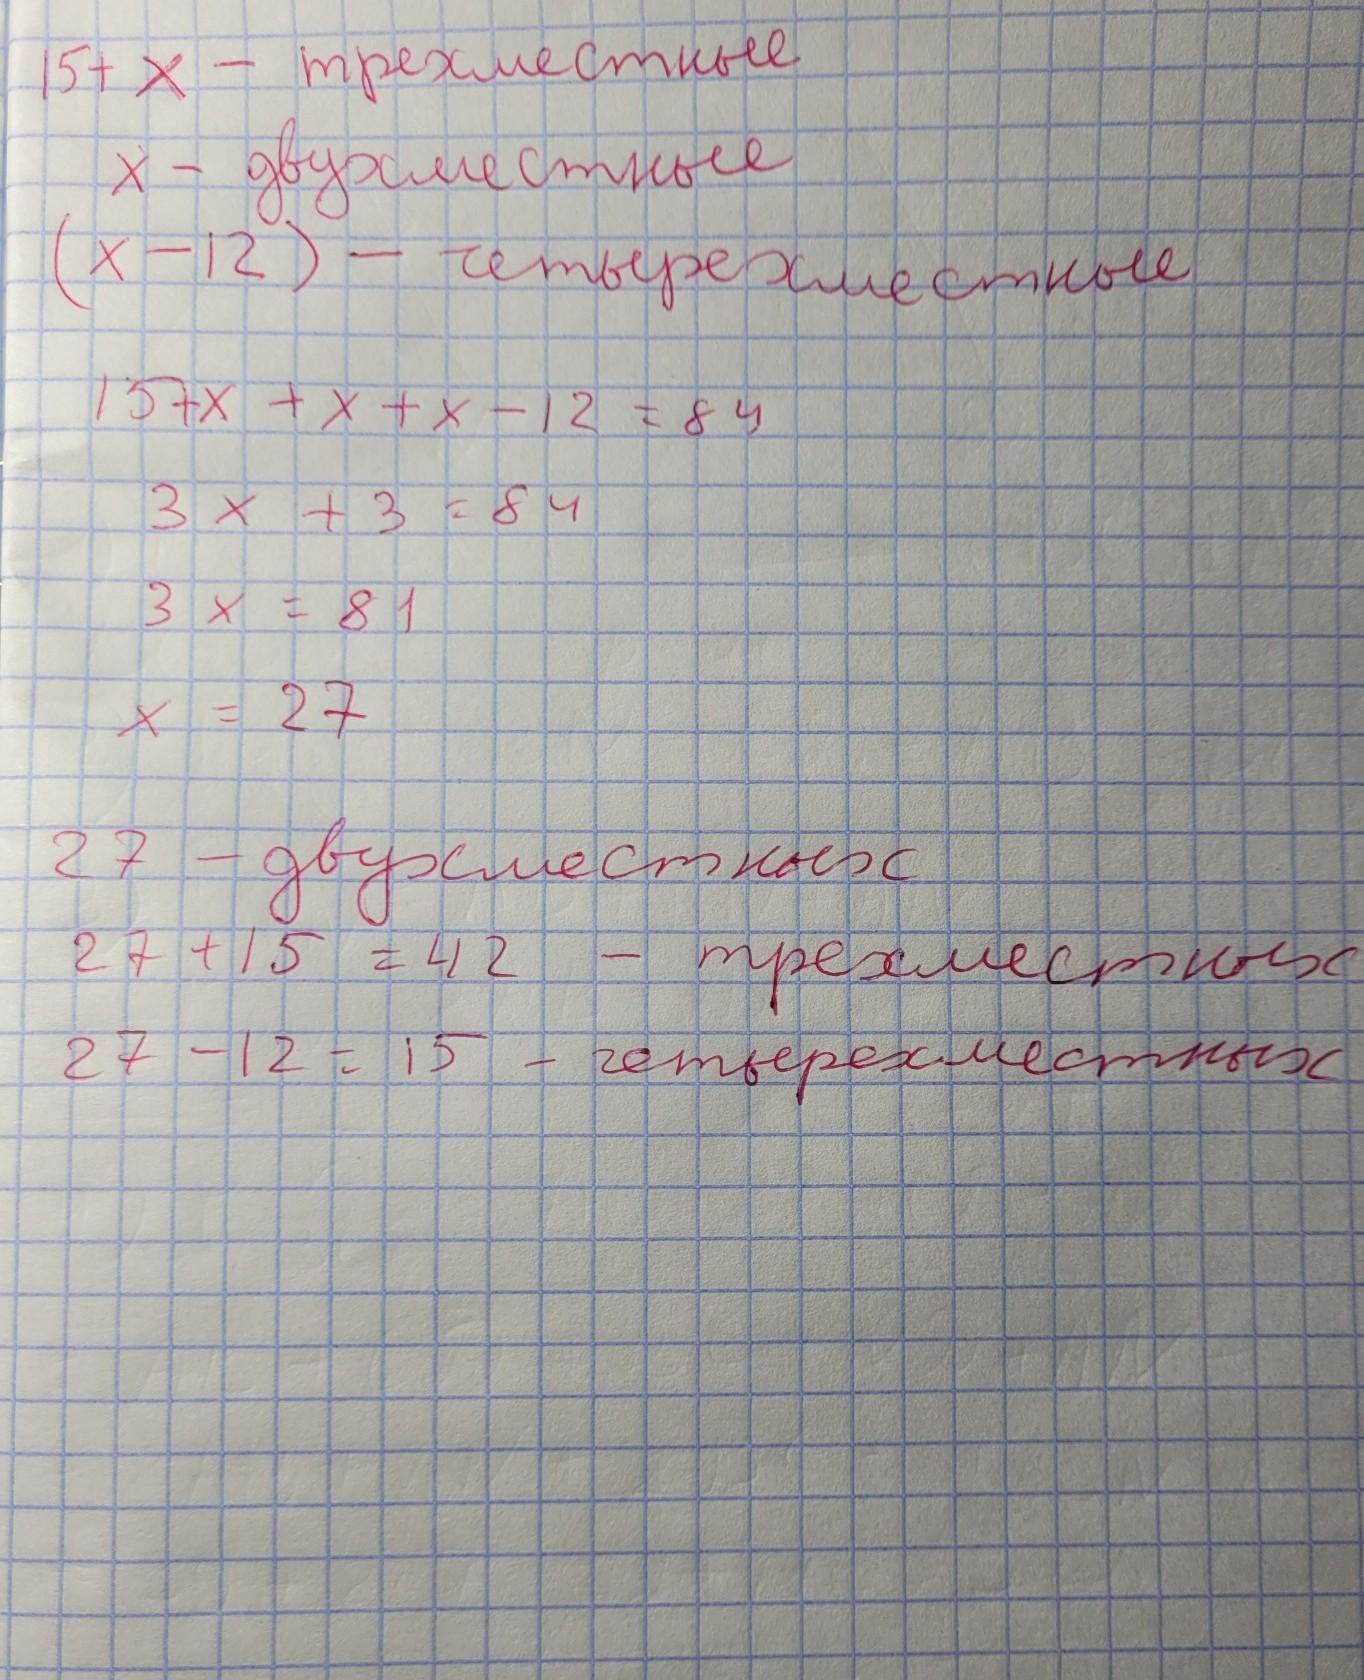 15+ x - трехместные
x - двухместные
(x - 12) - четырехместные
15+x + x + x - 12 = 84
3 x + 3 = 84
3 x = 81
x = 27
27 - двухместных
27 + 15 = 42 - трехместных
27 - 12 = 15 - четырехместных